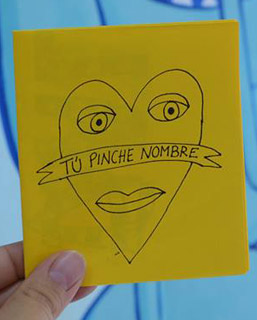 TÚ PINCHE NOMBRE